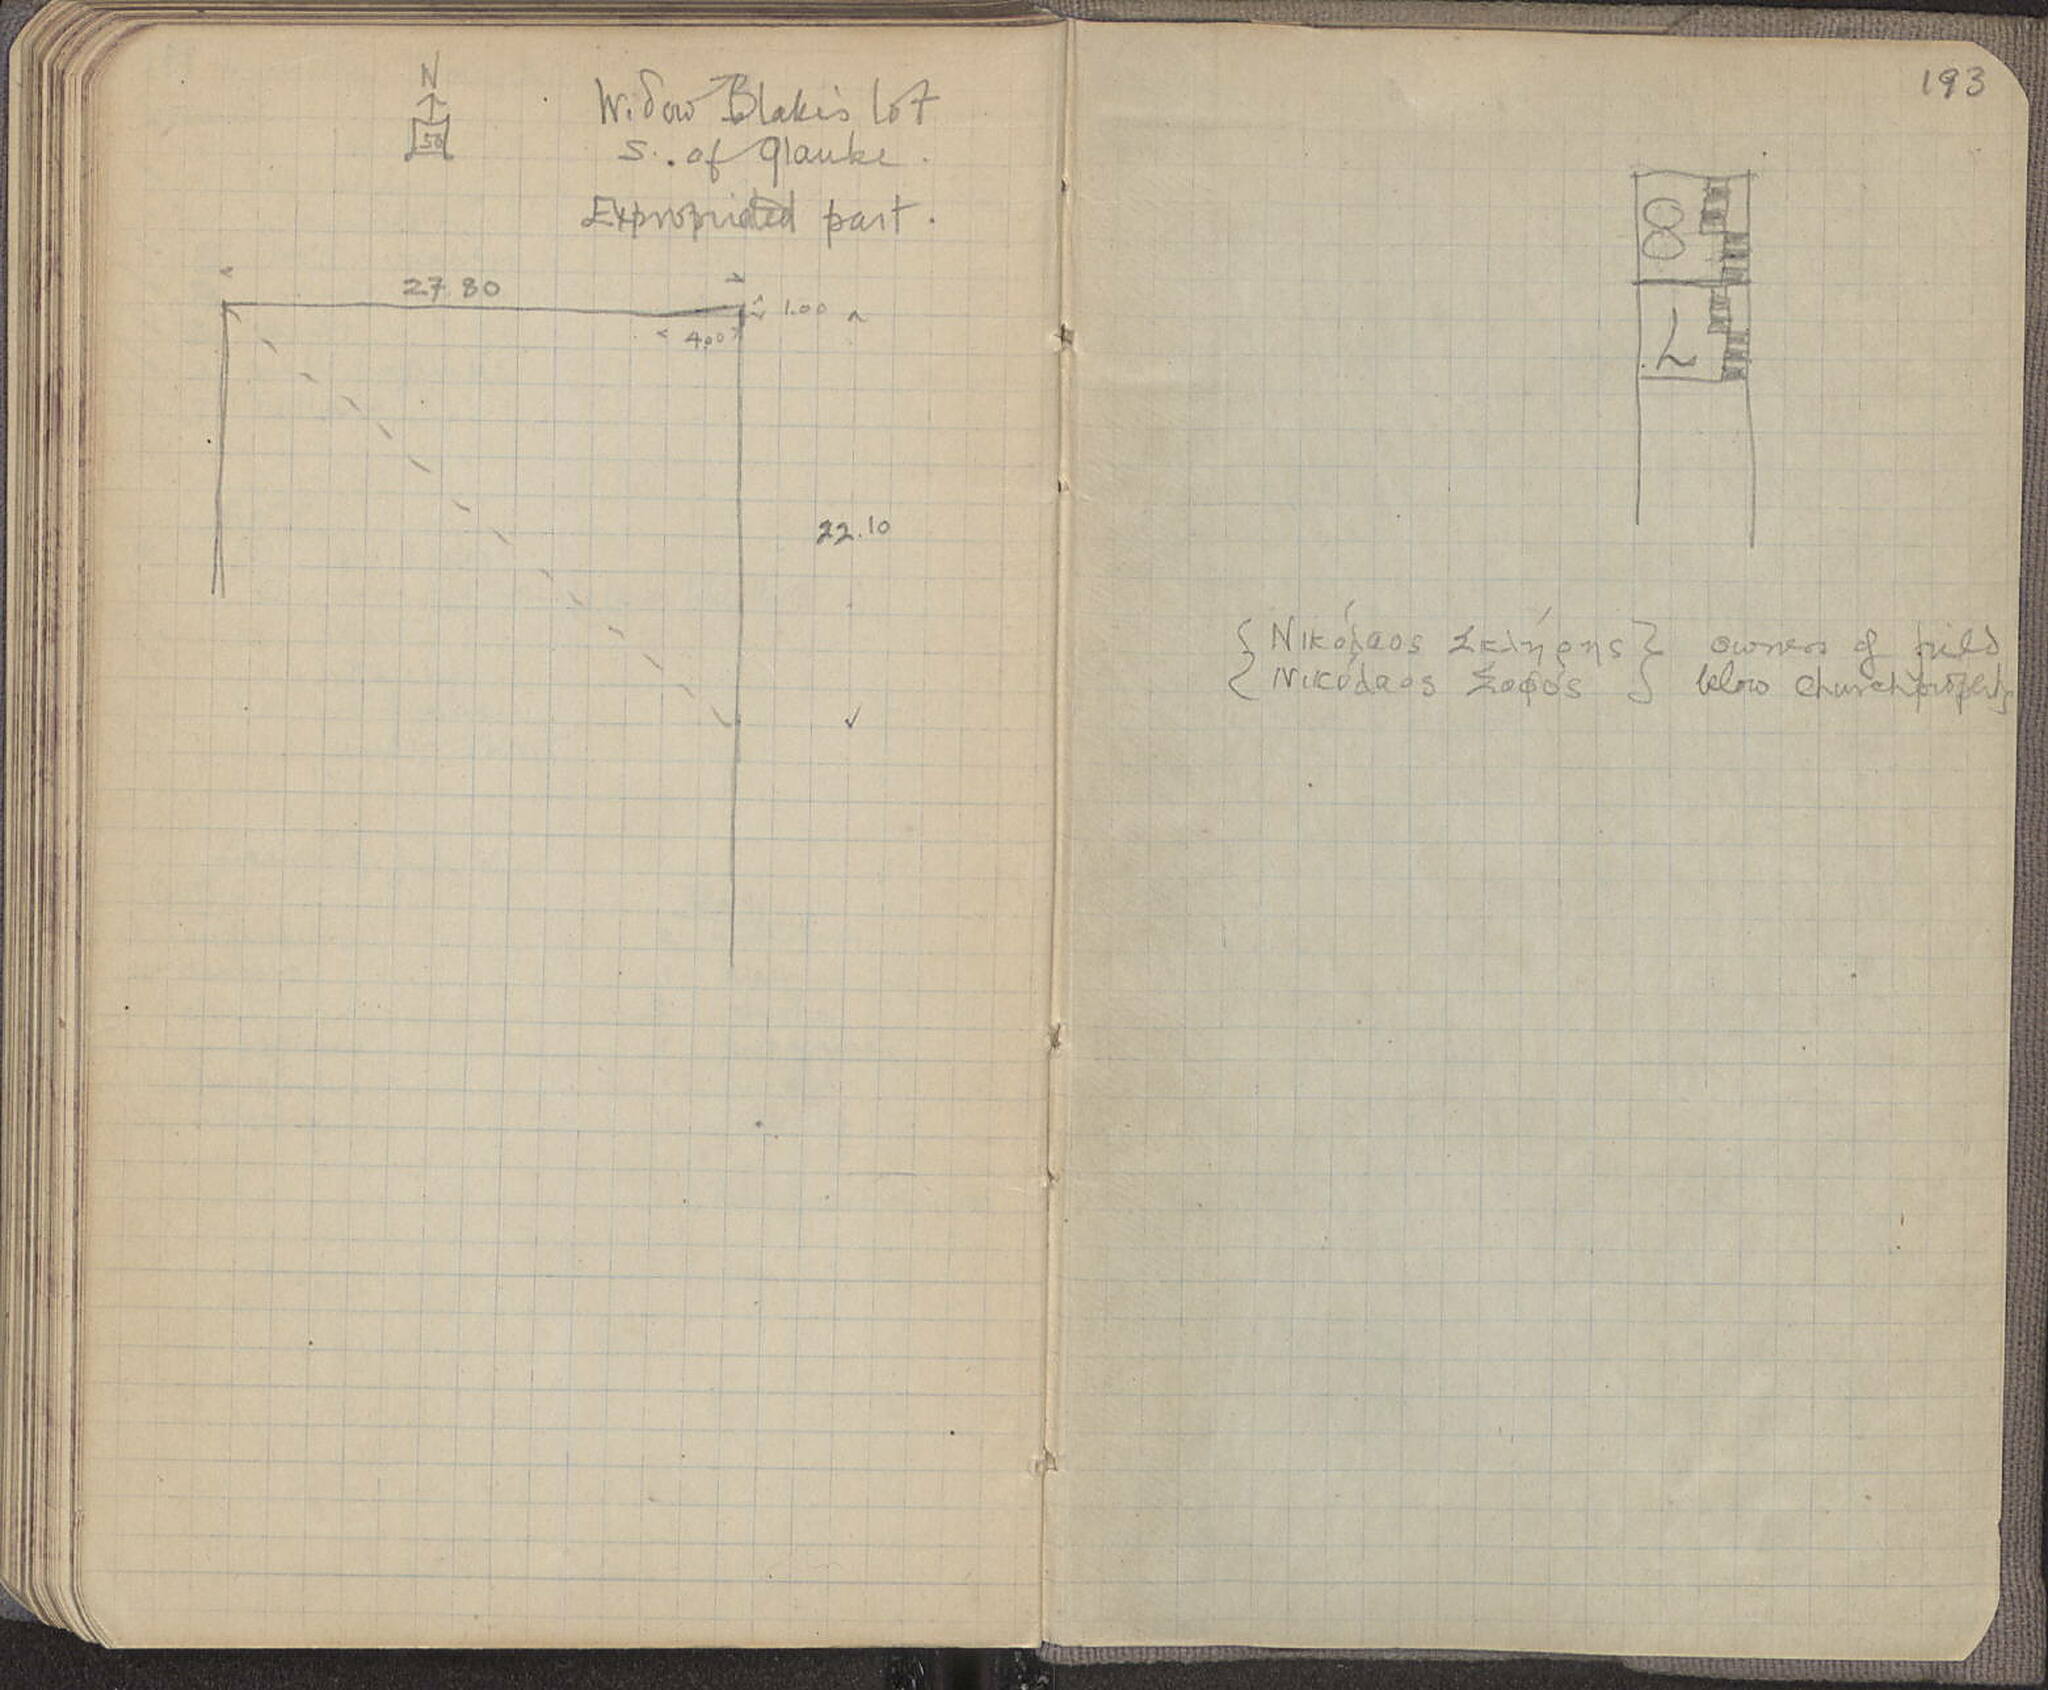 N
50
Widow Blakis lot
S. of Glauke.
Expropriated part.
27.80
1.00
4.00
22.10
193
8
7
{ Νικόλαος Σκλήρης } owners of field
{ Νικόλαος Σοφός } below church property